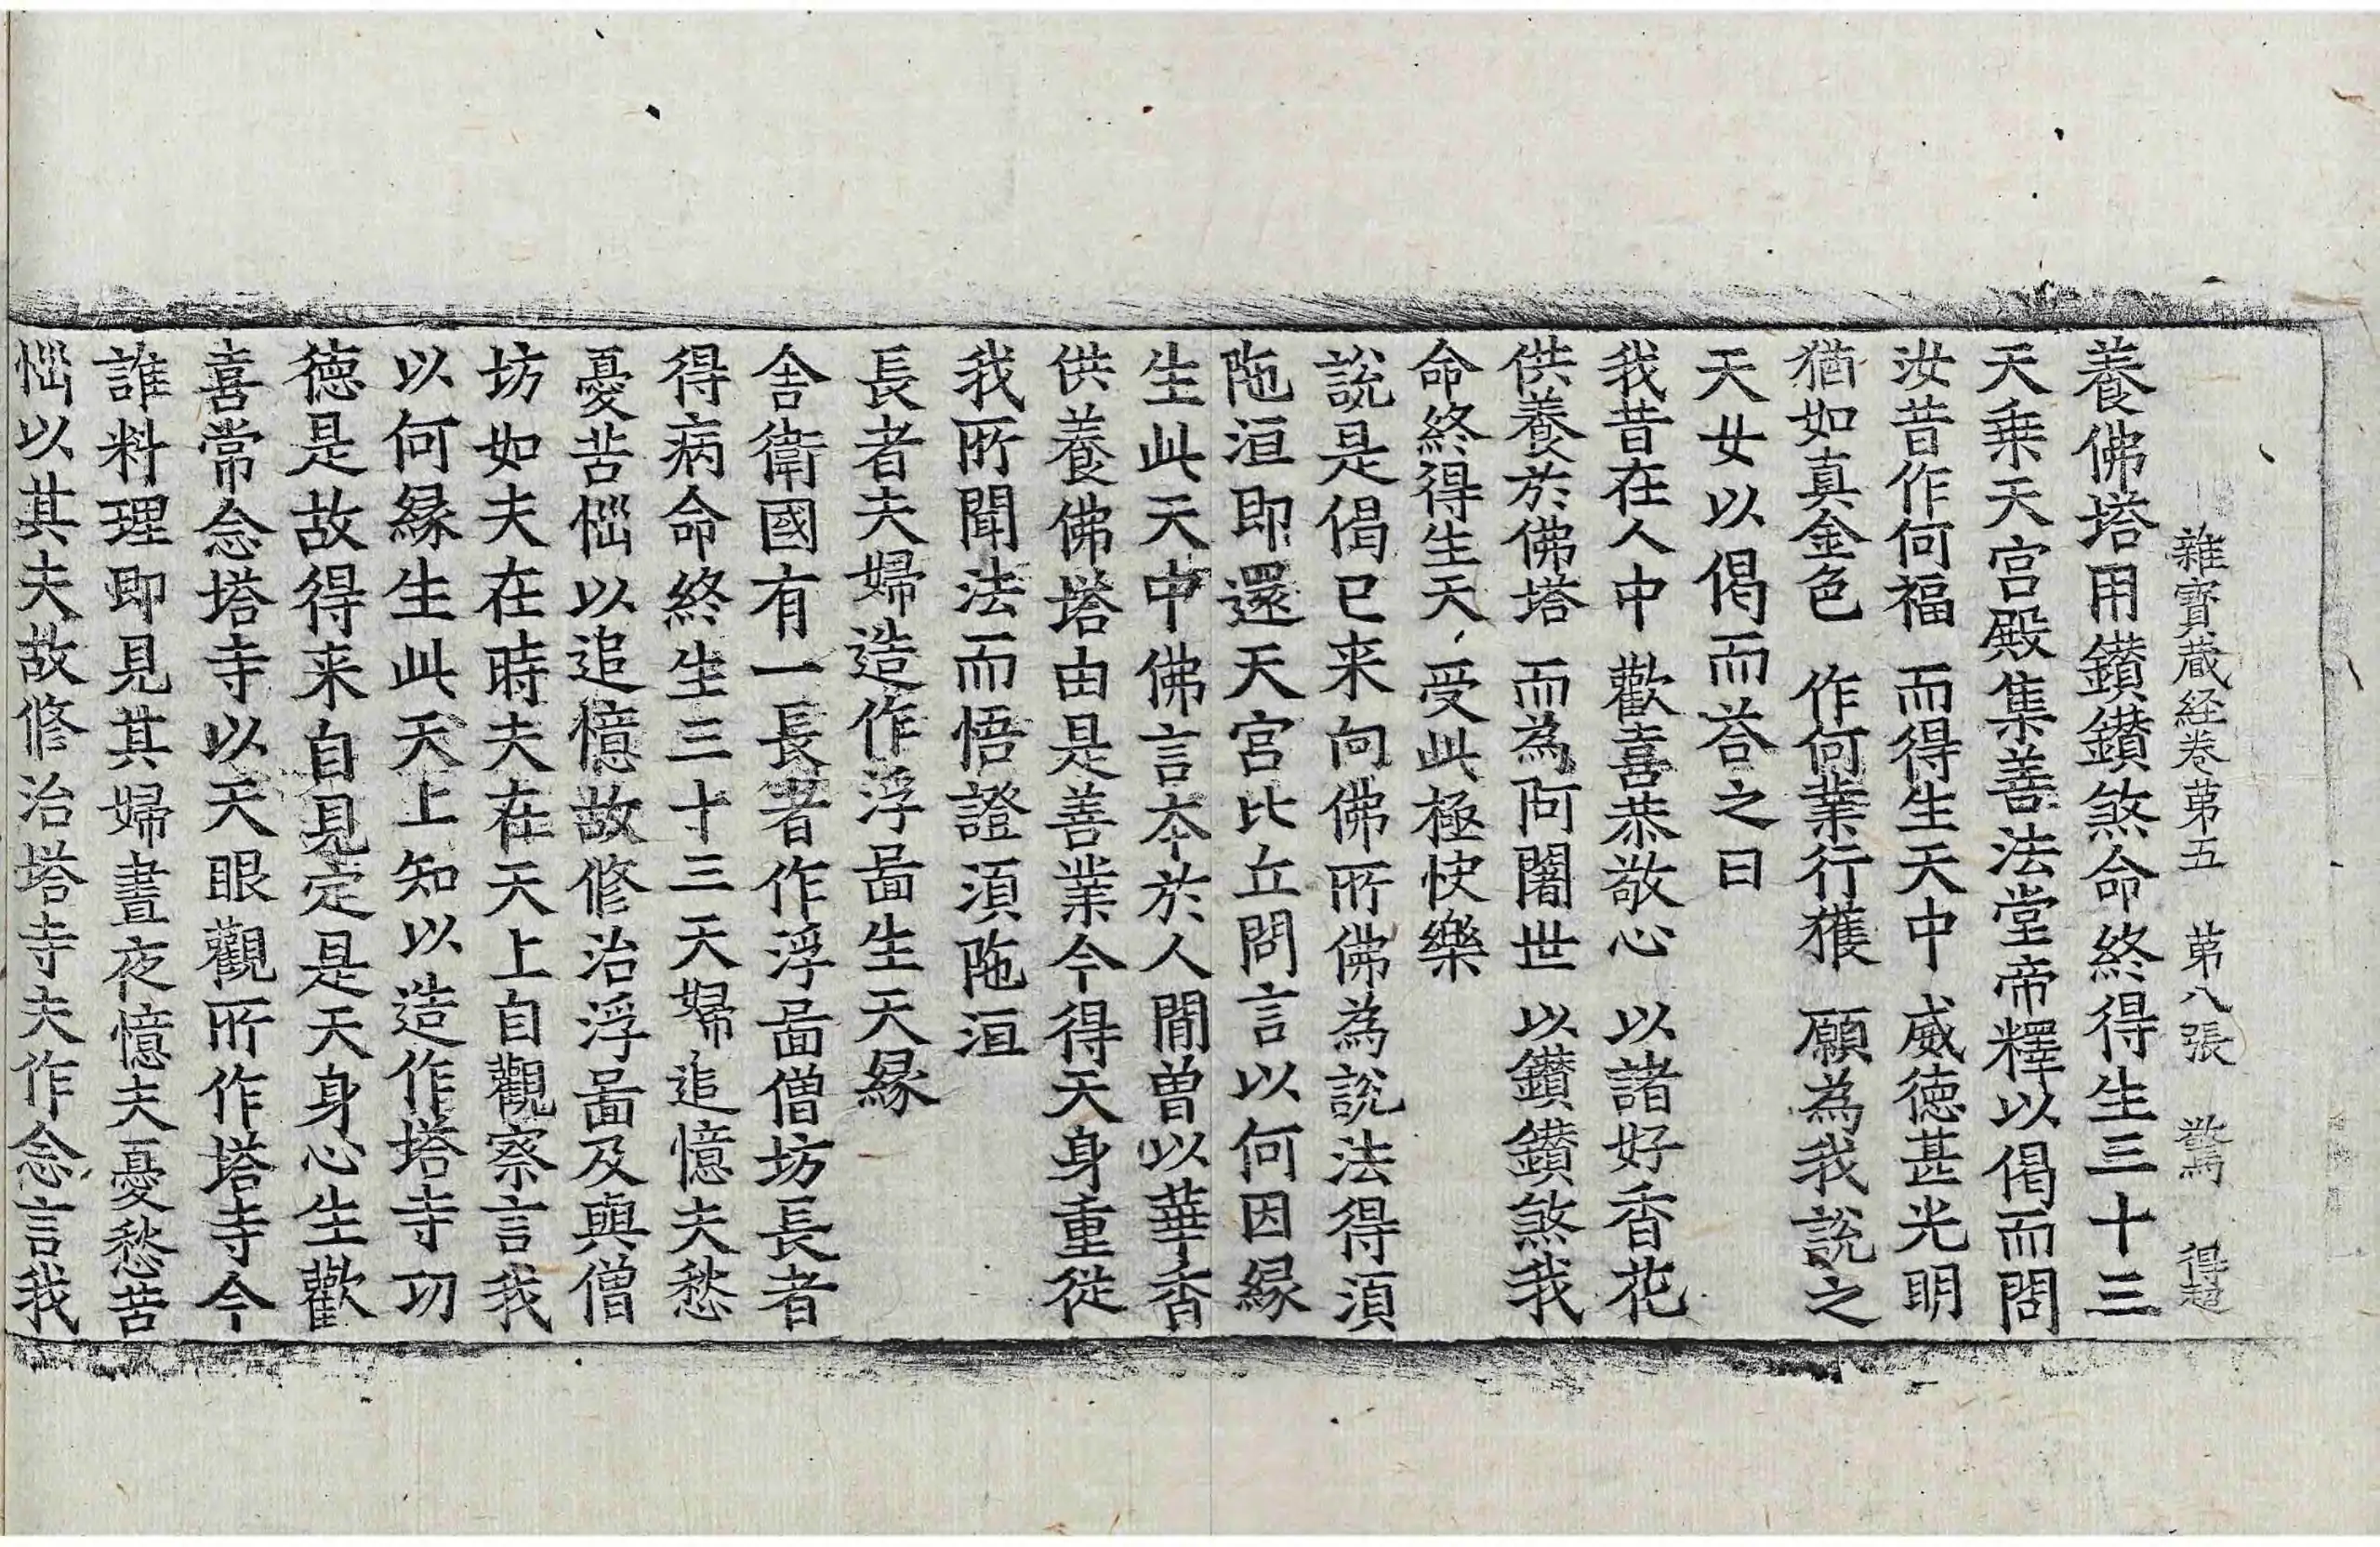 雜寶蔵経卷第五 第八張 驚 得超
養佛塔用鑚鑚煞命終得生三十三
天乗天宫殿集善法堂帝釋以偈而問
汝昔作何福 而得生天中 威徳甚光明
猶如真金色 作何業行獲 願為我説之
天女以偈而荅之曰
我昔在人中 歡喜恭敬心 以諸好香花
供養於佛塔 而為阿闍世 以鑚鑚煞我
命終得生天 受此極快樂
説是偈已来向佛所佛為説法得湏
陁洹即還天宫比丘問言以何因縁
生此天中佛言本於人間曽以華香
供養佛塔由是善業今得天身重從
我所聞法而悟證湏陁洹
長者夫婦造作浮啚生天縁
舍衛國有一長者作浮啚僧坊長者
得病命終生三十三天婦追憶夫愁
憂苦惱以追憶故修治浮啚及與僧
坊如夫在時夫在天上自觀察言我
以何縁生此天上知以造作塔寺功
徳是故得来自見定是天身心生歡
喜常念塔寺以天眼觀所作塔寺今
誰料理即見其婦晝夜憶夫憂愁苦
惱以其夫故修治塔寺夫作念言我